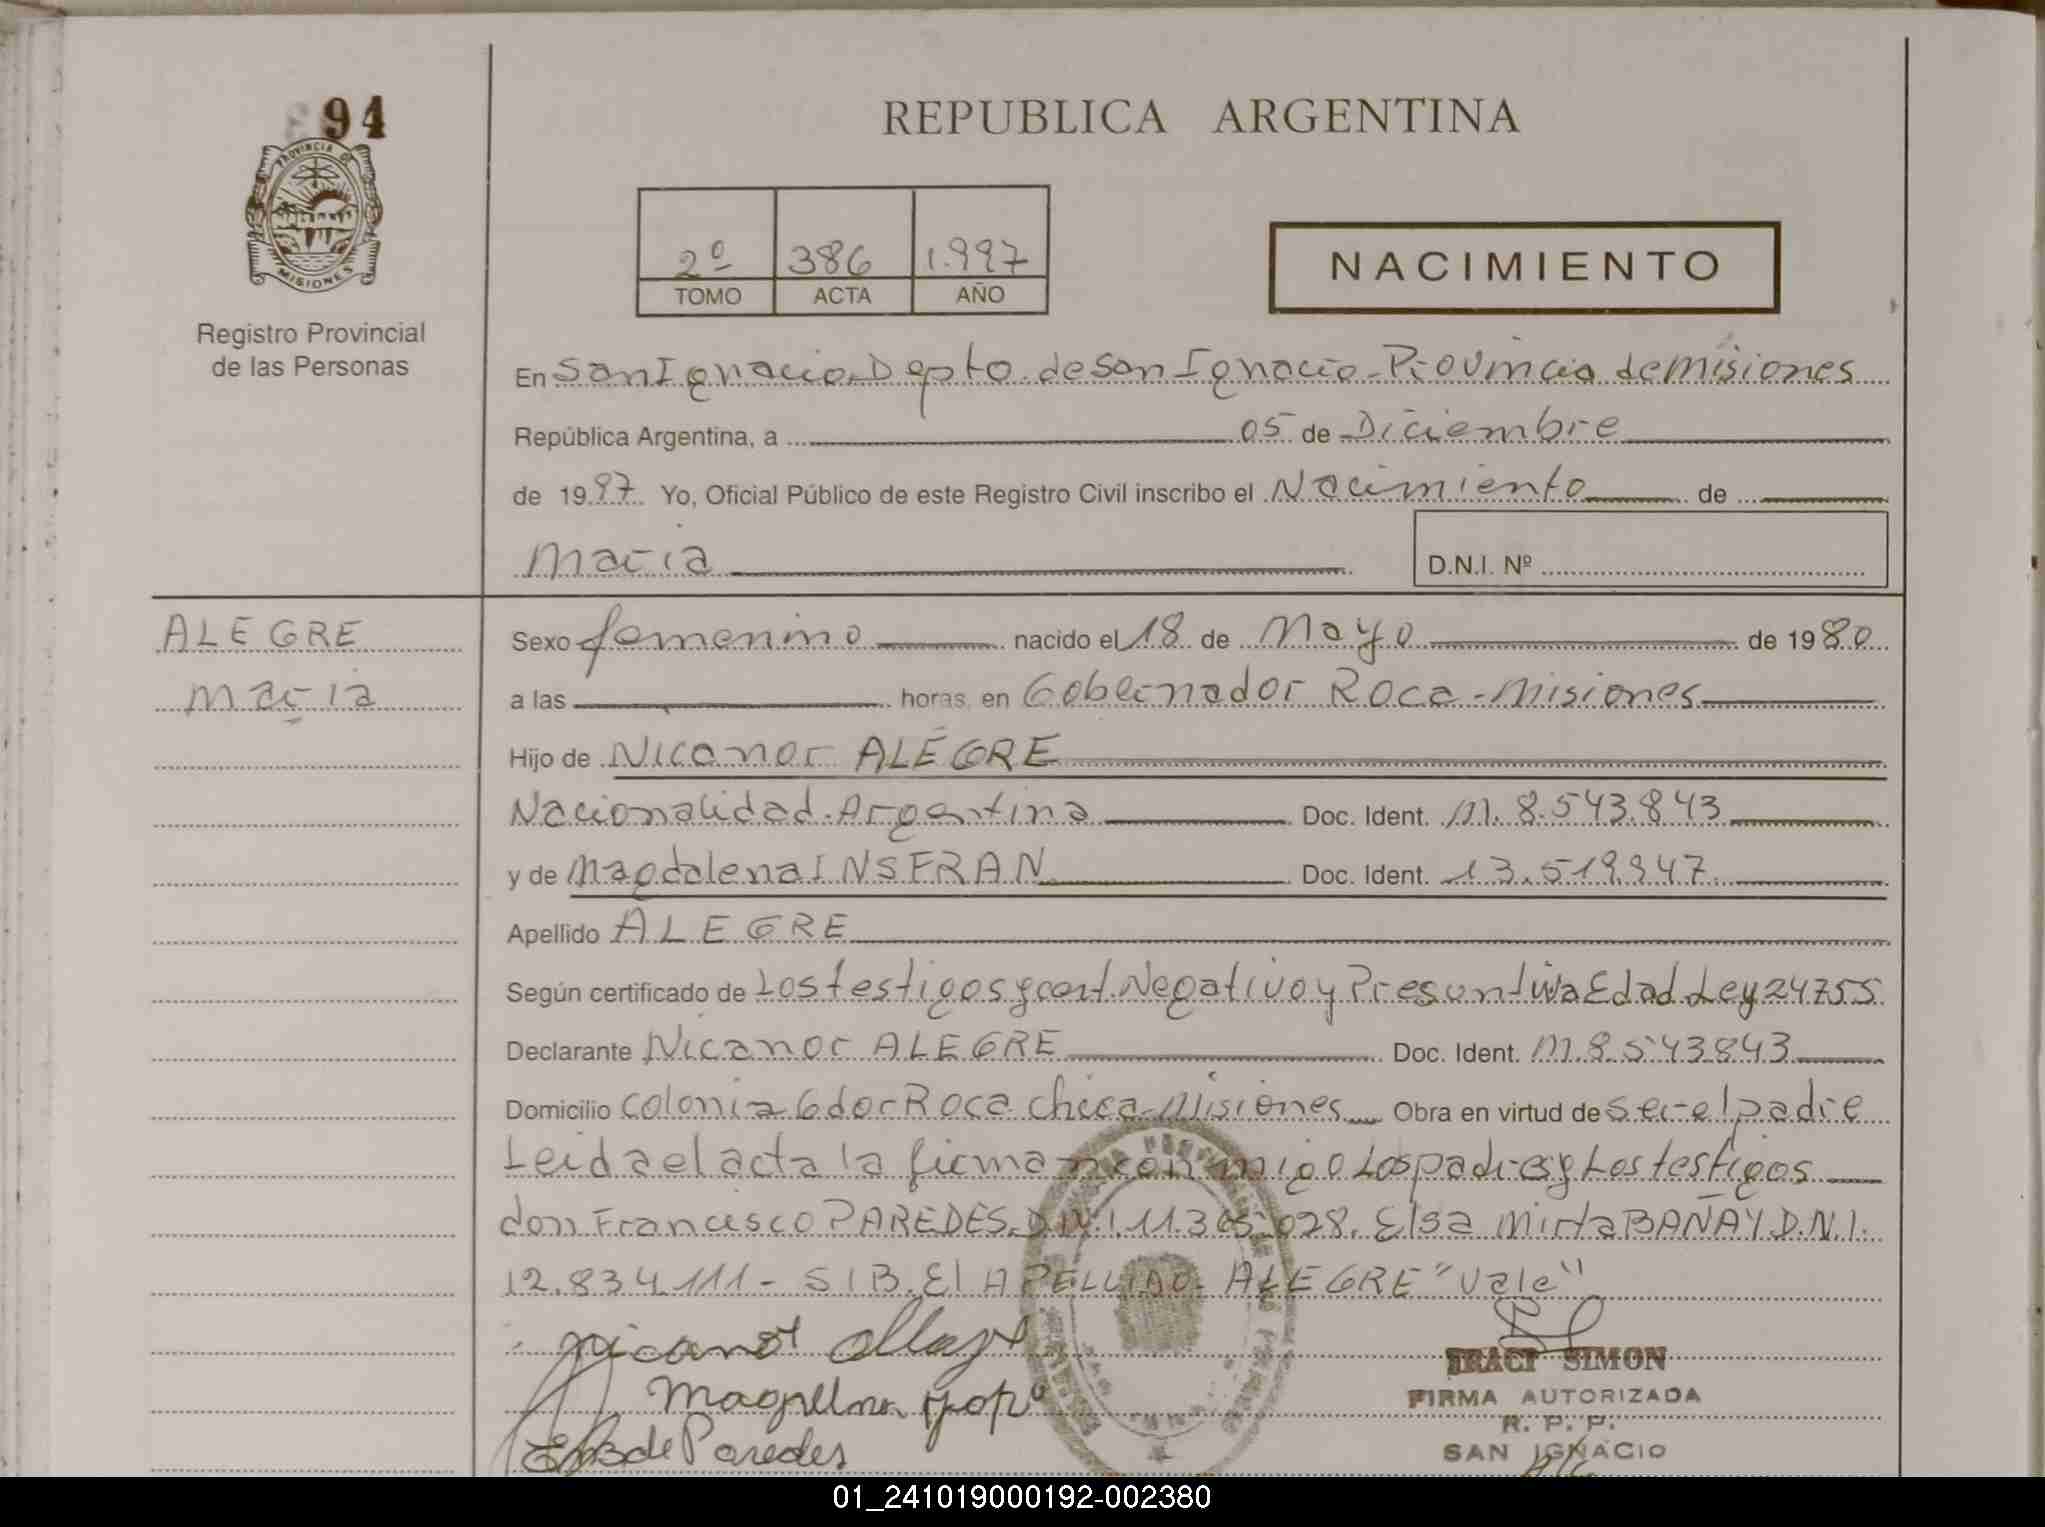 94
PROVINCIA DE
MISIONES
Registro Provincial
de las Personas
REPUBLICA ARGENTINA
2º 386 1.997
TOMO ACTA AÑO
NACIMIENTO
En San Ignacio Depto. de San Ignacio - Provincia de Misiones
República Argentina, a 05 de Diciembre
de 1997 Yo, Oficial Público de este Registro Civil inscribo el Nacimiento de
Maria
D.N.I. Nº
ALEGRE
Maria
Sexo femenino nacido el 18 de Mayo de 1980
a las horas, en Gobernador Roca - Misiones
Hijo de Nicanor ALEGRE
Nacionalidad Argentina Doc. Ident. M. 8.543.843
y de Magdalena INSFRAN Doc. Ident. 13.519.947
Apellido ALEGRE
Según certificado de Los testigos y cert. Negativo y Presuntiva Edad Ley 24755
Declarante Nicanor ALEGRE Doc. Ident. M.8.543843
Domicilio Colonia Gdor Roca Chica - Misiones Obra en virtud de ser el padre
Leida el acta la firman conmigo Los padres y Los testigos
don Francisco PAREDES D.N.I. 11.365.028. Elsa Mirta BAÑAY D.N.I.
12.834.111 - S/B. El APELLIDO - ALEGRE "Vale"
Nicanor
Magdalena
E B de Paredes
IRACI SIMON
FIRMA AUTORIZADA
R. P. P.
SAN IGNACIO
01_241019000192-002380